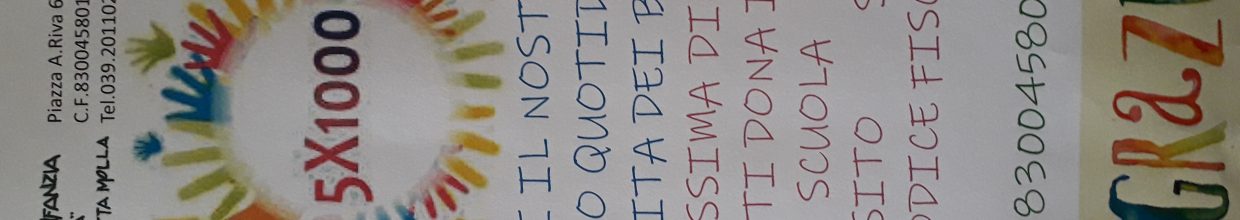 FANZIA Piazza A.Riva 6
C.F.830045801
TTA MOLLA Tel.039.201102
5X1000
IL NOST
O QUOTID
ITA DEI
SSIMA DI
TI DONA
SCUOLA
SITO
ODICE FISC
83004580
GRaZ